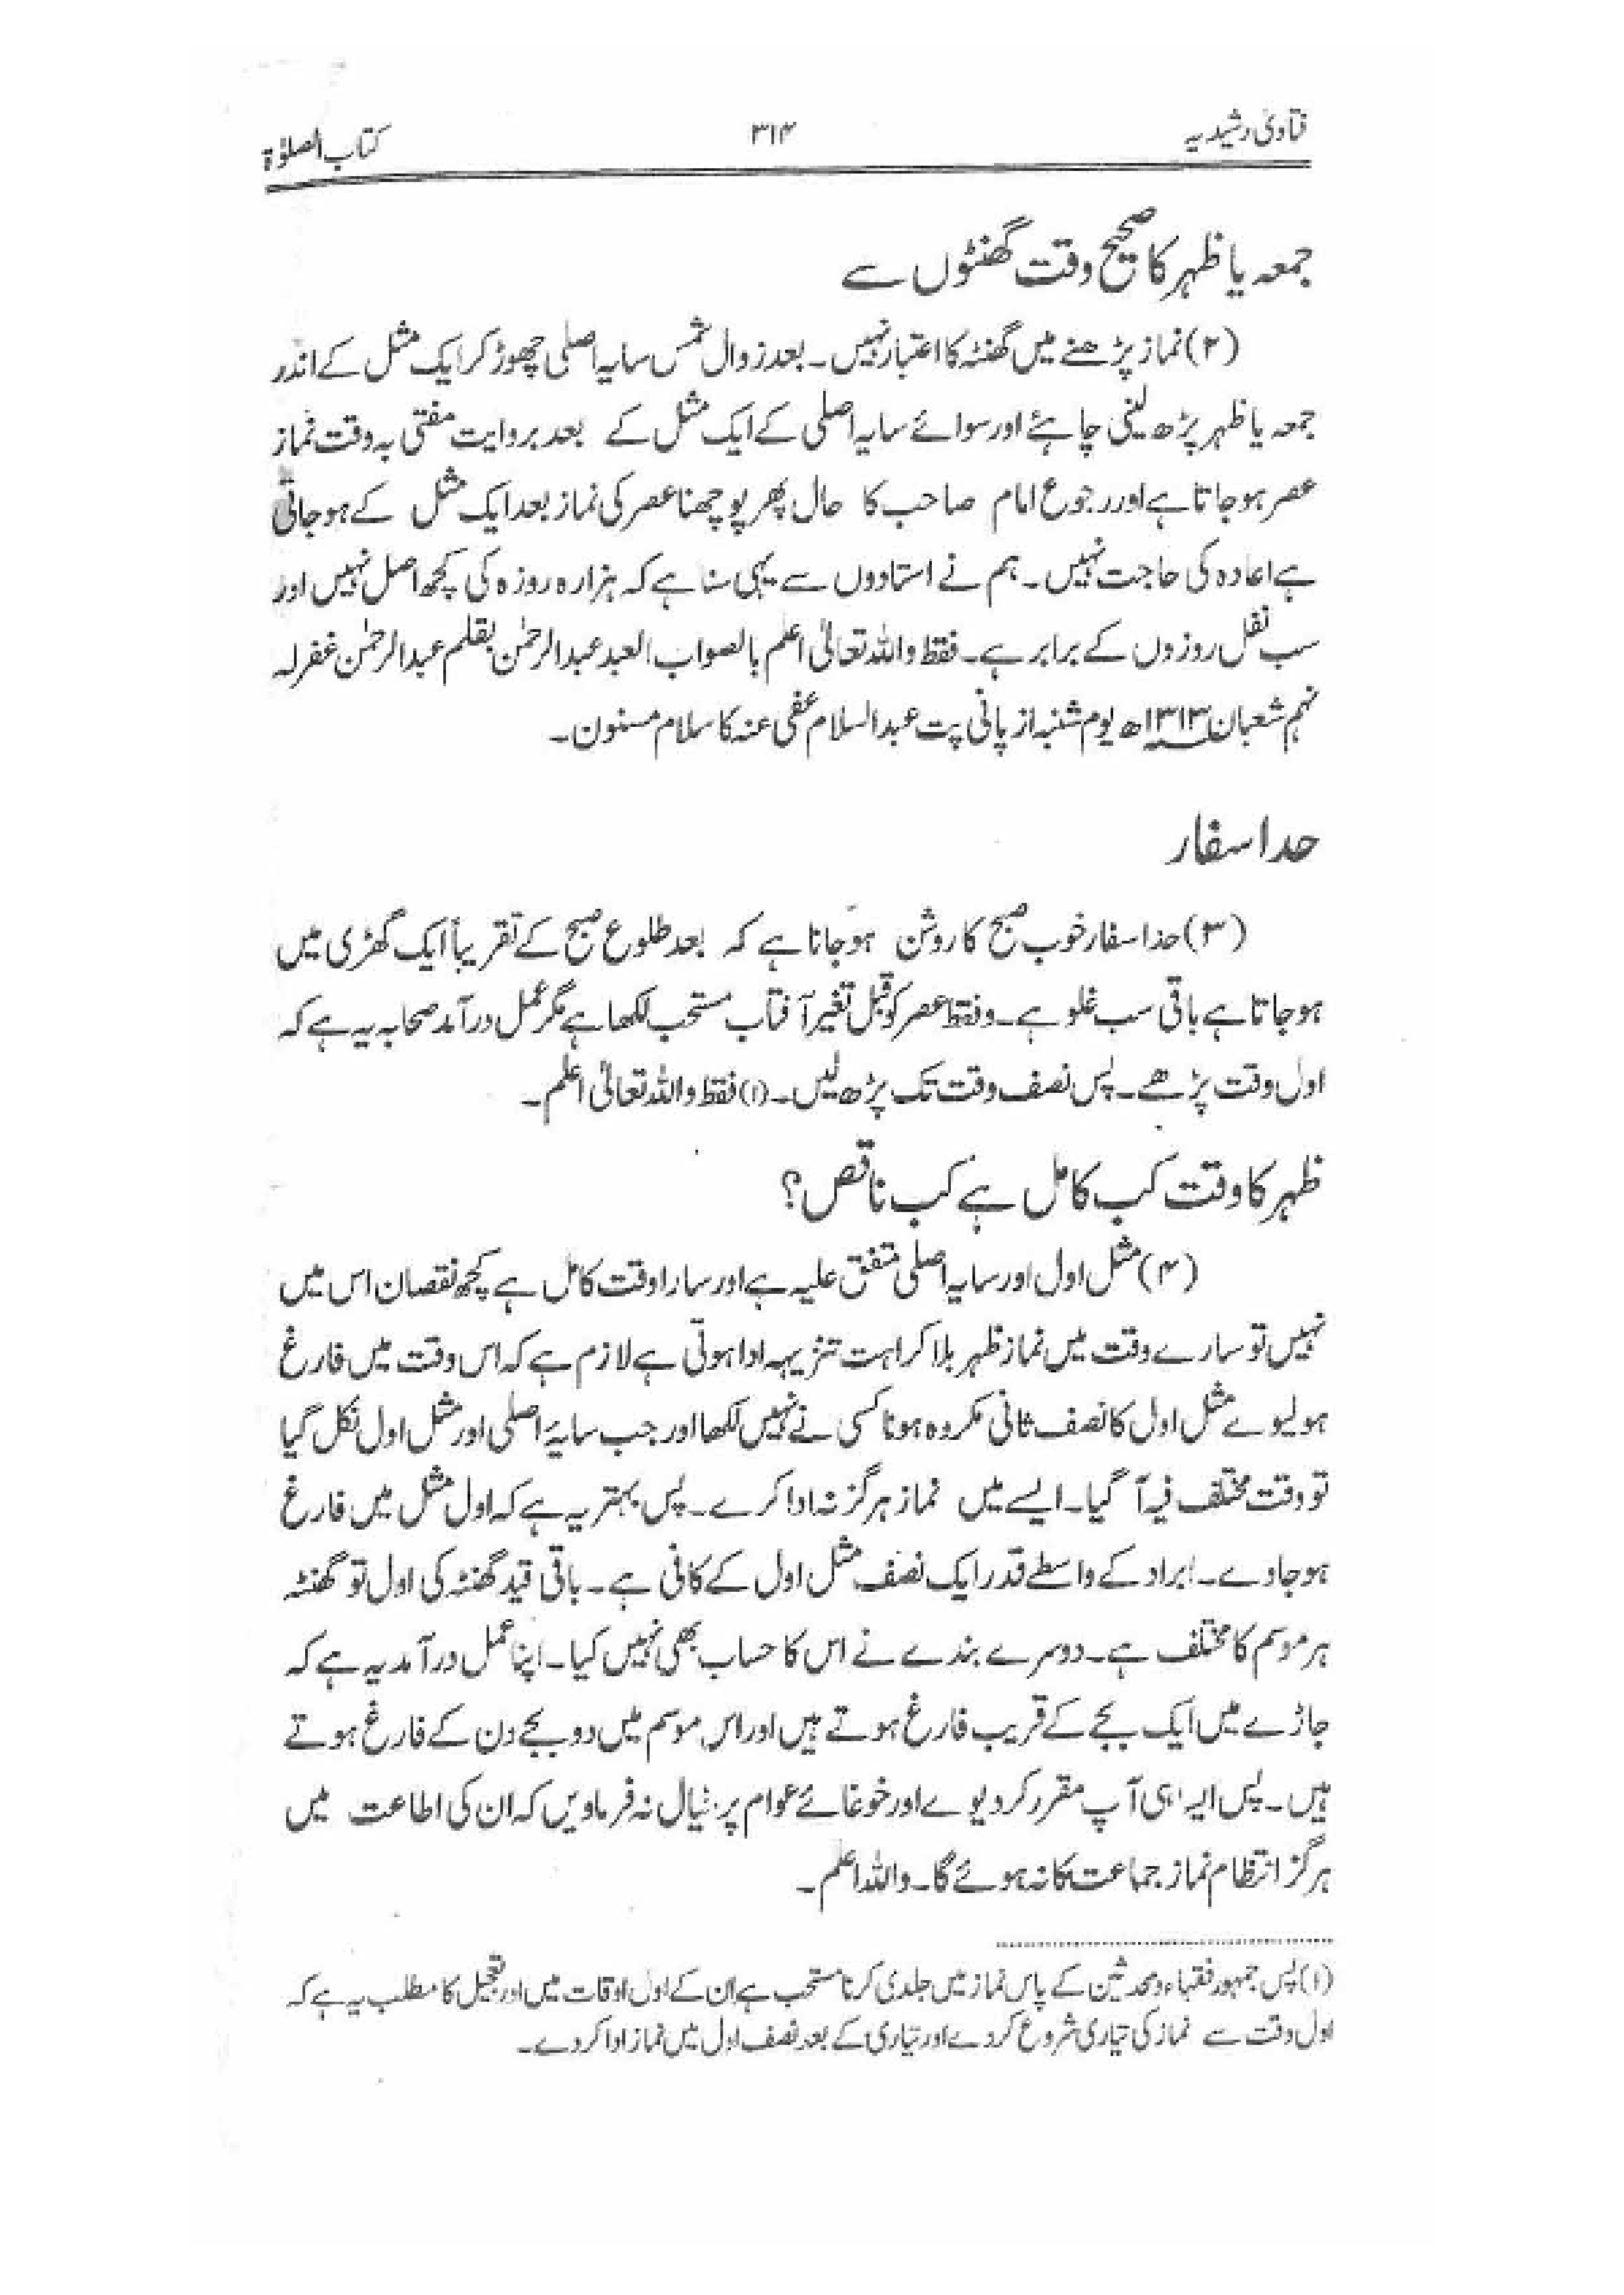 فتاویٰ رشیدیہ ۳۱۴ کتاب الصلوٰۃ
جمعہ یا ظہر کا صحیح وقت گھنٹوں سے
(۲) نماز پڑھنے میں گھنٹہ کا اعتبار نہیں۔ بعد زوال شمس سایہ اصلی چھوڑ کر ایک مثل کے اندر
جمعہ یا ظہر پڑھ لینی چاہئے اور سوائے سایہ اصلی کے ایک مثل کے بعد بروایت مفتی بہ وقت نماز
عصر ہو جاتا ہے اور رجوع امام صاحب کا حال پھر پوچھنا عصر کی نماز بعد ایک مثل کے ہو جاتی
ہے اعادہ کی حاجت نہیں۔ ہم نے استادوں سے یہی سنا ہے کہ ہزارہ روزہ کی کچھ اصل نہیں اور
سب نفل روزوں کے برابر ہے۔ فقط واللہ تعالیٰ اعلم بالصواب العبد عبدالرحمٰن بقلم عبدالرحمٰن غفرلہ
نہم شعبان ۱۳۱۳ھ یوم شنبہ از پانی پت عبدالسلام عفی عنہ کا سلام مسنون۔
حد اسفار
(۳) حد اسفار خوب صبح کا روشن ہو جانا ہے کہ بعد طلوع صبح کے تقریباً ایک گھڑی میں
ہو جاتا ہے باقی سب غلو ہے۔ وفقط عصر کو قبل تغیر آفتاب مستحب لکھا ہے مگر عمل درآمد صحابہ یہ ہے کہ
اول وقت پڑھے۔ پس نصف وقت تک پڑھ لیں۔ (۱) فقط واللہ تعالیٰ اعلم۔
ظہر کا وقت کب کامل ہے کب ناقص؟
(۴) مثل اول اور سایہ اصلی متفق علیہ ہے اور سارا وقت کامل ہے کچھ نقصان اس میں
نہیں تو سارے وقت میں نماز ظہر بلا کراہت تنزیہہ ادا ہوتی ہے لازم ہے کہ اس وقت میں فارغ
ہو لیوے مثل اول کا نصف ثانی مکروہ ہونا کسی نے نہیں لکھا اور جب سایۂ اصلی اور مثل اول نکل گیا
تو وقت مختلف فیہ آ گیا۔ ایسے میں نماز ہرگز نہ ادا کرے۔ پس بہتر یہ ہے کہ اول مثل میں فارغ
ہو جاوے۔ ابراد کے واسطے قدر ایک نصف مثل اول کے کافی ہے۔ باقی قید گھنٹہ کی اول تو گھنٹہ
ہر موسم کا مختلف ہے۔ دوسرے بندے نے اس کا حساب بھی نہیں کیا۔ اپنا عمل درآمد یہ ہے کہ
جاڑے میں ایک بجے کے قریب فارغ ہوتے ہیں اور اس موسم میں دو بجے دن کے فارغ ہوتے
ہیں۔ پس ایسا ہی آپ مقرر کر دیوے اور خوغائے عوام پر خیال نہ فرماویں کہ ان کی اطاعت میں
ہرگز انتظام نماز جماعت کا نہ ہوئے گا۔ واللہ اعلم۔
(۱) پس جمہور فقہاء و محدثین کے پاس نماز میں جلدی کرنا مستحب ہے ان کے اول اوقات میں اور تعجیل کا مطلب یہ ہے کہ
اول وقت سے نماز کی تیاری شروع کر دے اور تیاری کے بعد نصف اول میں نماز ادا کر دے۔